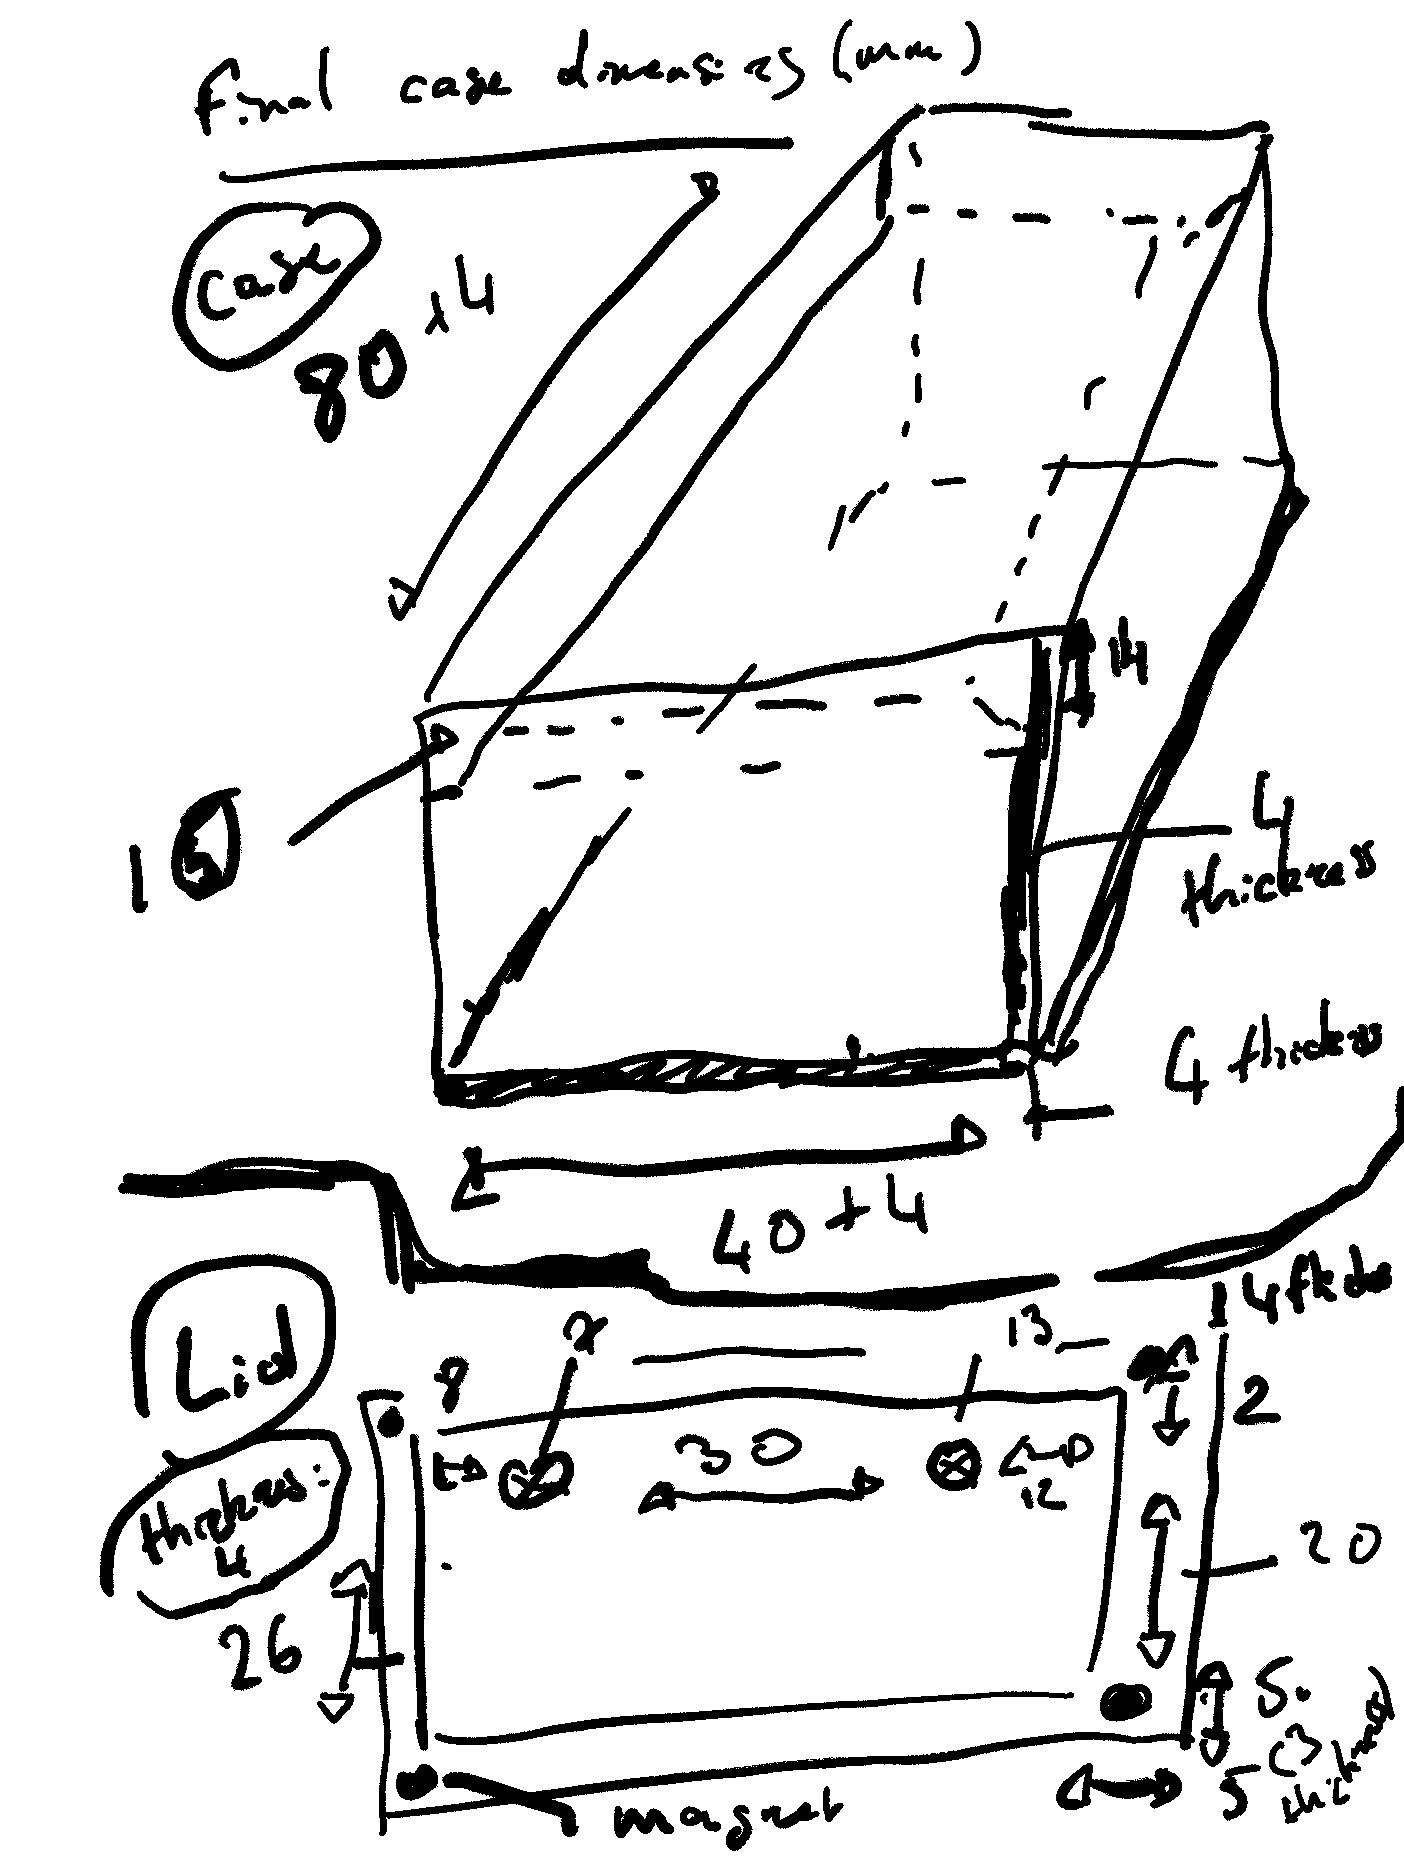 final case dimensizes (mm)
case
80 + 4
14
4
thickness
4 thickness
40 + 4
Lid
thickness:
4
8
x
13
2
30
12
20
26
5.
5 (3
thickness)
magnet